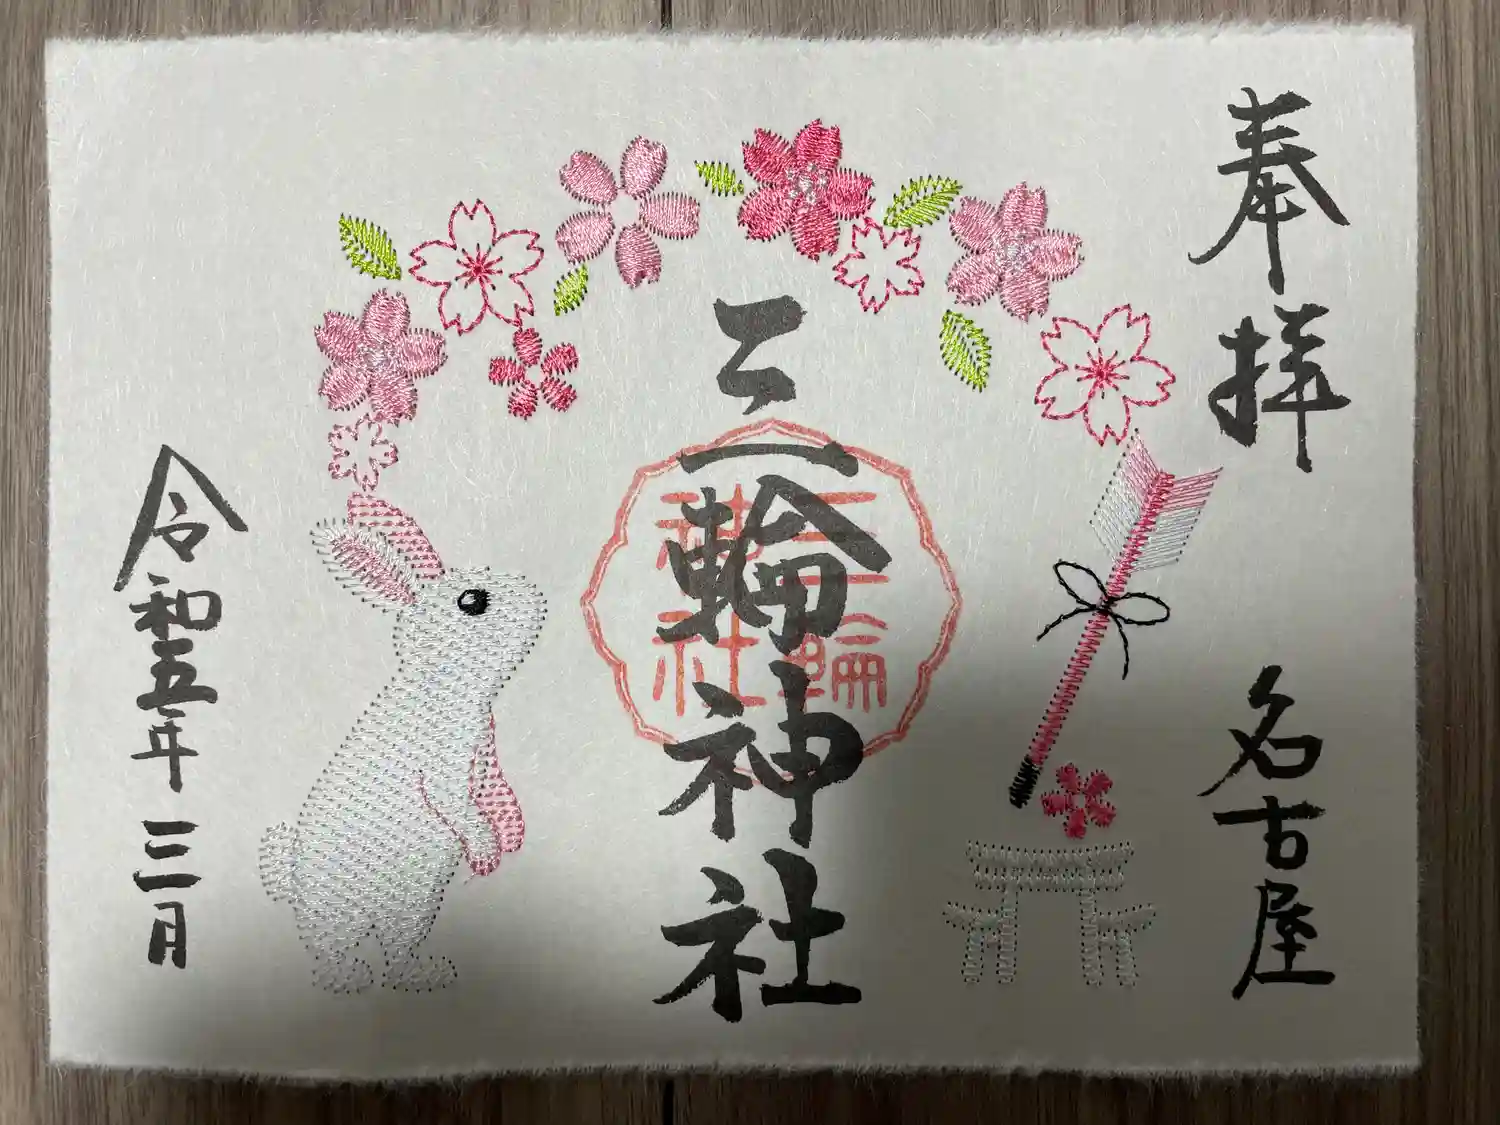 奉拝
名古屋
三輪神社
三輪
神社
令和五年三月